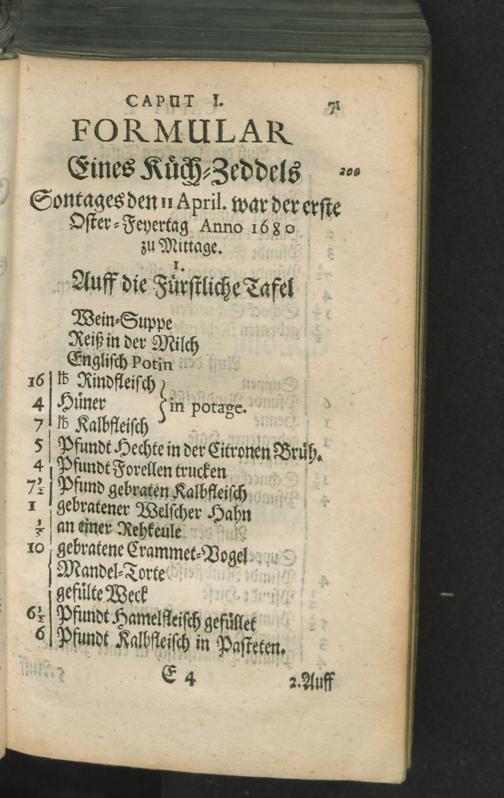 CAPUT I. 71
FORMULAR
Eines Küch-Zeddels 200
Sontages den 11 April. war der erste
Oster-Feyertag Anno 1680
zu Mittage.
1.
Auff die Fürstliche Tafel
Wein-Suppe
Reiß in der Milch
Englisch Potin
16 ℔ Rindfleisch
4 Hüner } in potage.
7 ℔ Kalbfleisch
5 Pfundt Hechte in der Citronen Brüh.
4 Pfundt Forellen trucken
7½ Pfund gebraten Kalbfleisch
1 gebratener Welscher Hahn
an einer Rehkeule
10 gebratene Crammet-Vogel
Mandel-Torte
gefülte Weck
6½ Pfundt Hamelfleisch gefüllet
6 Pfundt Kalbfleisch in Pasteten.
E 4 2. Auff